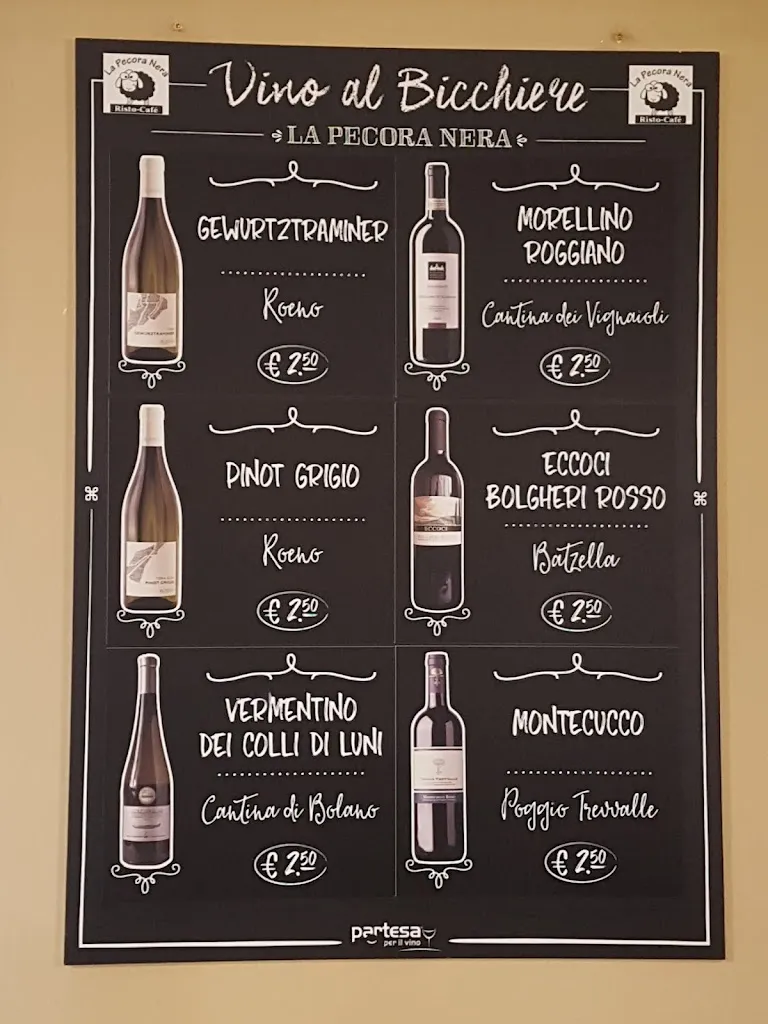 La Pecora Nera
Risto-Café
Vino al Bicchiere
La Pecora Nera
Risto-Café
LA PECORA NERA
GEWURTZTRAMINER
Roeno
€ 2.50
MORELLINO
ROGGIANO
Cantina dei Vignaioli
€ 2.50
PINOT GRIGIO
Roeno
€ 2.50
ECCOCI
BOLGHERI ROSSO
Batzella
€ 2.50
ECCOCI
VERMENTINO
DEI COLLI DI LUNI
Cantina di Bolano
€ 2.50
MONTECUCCO
Poggio Trevvalle
€ 2.50
GEWURZTRAMINER
PINOT GRIGIO
partesa
per il vino